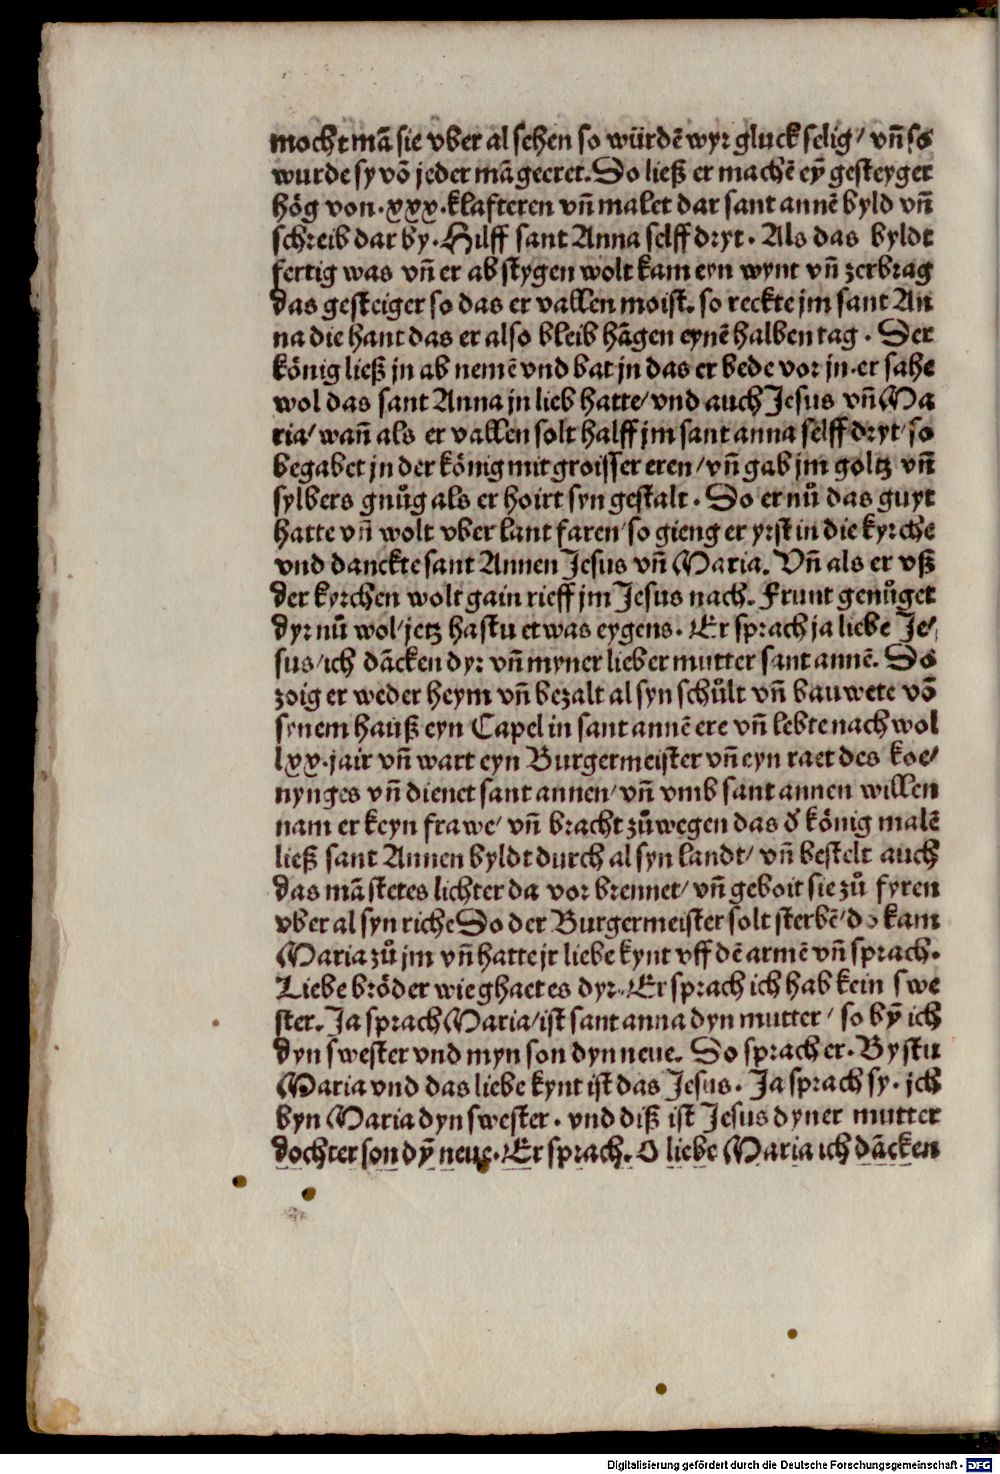 mocht mā sie vber al sehen so würdē wyr gluck selig/ vñ so
wurde sy võ jeder mā geeret. So ließ er machē eȳ gesteyger
hög von .xxx. klafteren vñ malet dar sant annē byld vñ
schreib dar by. Hilff sant Anna selff dryt. Als das byldt
fertig was vñ er ab stygen wolt kam eyn wynt vñ zerbrag
das gesteiger so das er vallen moist. so reckte jm sant An
na die hant das er also bleib hāgen eynē halben tag. Der
könig ließ jn ab nemē vnd bat jn das er bede vor jn. er sahe
wol das sant Anna jn lieb hatte/ vnd auch Jesus vñ Ma
ria/ wañ als er vallen solt halff jm sant anna selff dryt/ so
begabet jn der könig mit groisser eren/ vñ gab jm goltz vñ
sylbers gnůg als er hoirt syn gestalt. So er nů das guyt
hatte vñ wolt vber lant faren/ so gieng er yrst in die kyrche
vnd danckte sant Annen Jesus vñ Maria. Vñ als er vß
der kyrchen wolt gain rieff jm Jesus nach. Frunt genůget
dyr nů wol/ jetz hastu etwas eygens. Er sprach ja liebe Je/
sus/ ich dācken dyr vñ myner lieber mutter sant annē. So
zoig er weder heym vñ bezalt al syn schůlt vñ bauwete võ
synem hauß eyn Capel in sant annē ere vñ lebte nach wol
lxx. jair vñ wart eyn Burgermeister vñ eyn raet des koe/
nynges vñ dienet sant annen/ vñ vmb sant annen willen
nam er keyn frawe/ vñ bracht zů wegen das ď könig malē
ließ sant Annen byldt durch al syn landt/ vñ bestelt auch
das mā stetes lichter da vor brennet/ vñ geboit sie zů fyren
vber al syn riche So der Burgermeister solt sterbē/ do kam
Maria zů jm vñ hatte jr liebe kynt vff dē armē vñ sprach.
Liebe bröder wie ghaet es dyr. Er sprach ich hab kein swe
ster. Ja sprach Maria/ ist sant anna dyn mutter/ so bȳ ich
dyn swester vnd myn son dyn neue. So sprach er. Bystu
Maria vnd das liebe kynt ist das Jesus. Ja sprach sy. jch
byn Maria dyn swester. vnd diß ist Jesus dyner mutter
dochter son dȳ neue. Er sprach. O liebe Maria ich dācken
Digitalisierung gefördert durch die Deutsche Forschungsgemeinschaft - DFG